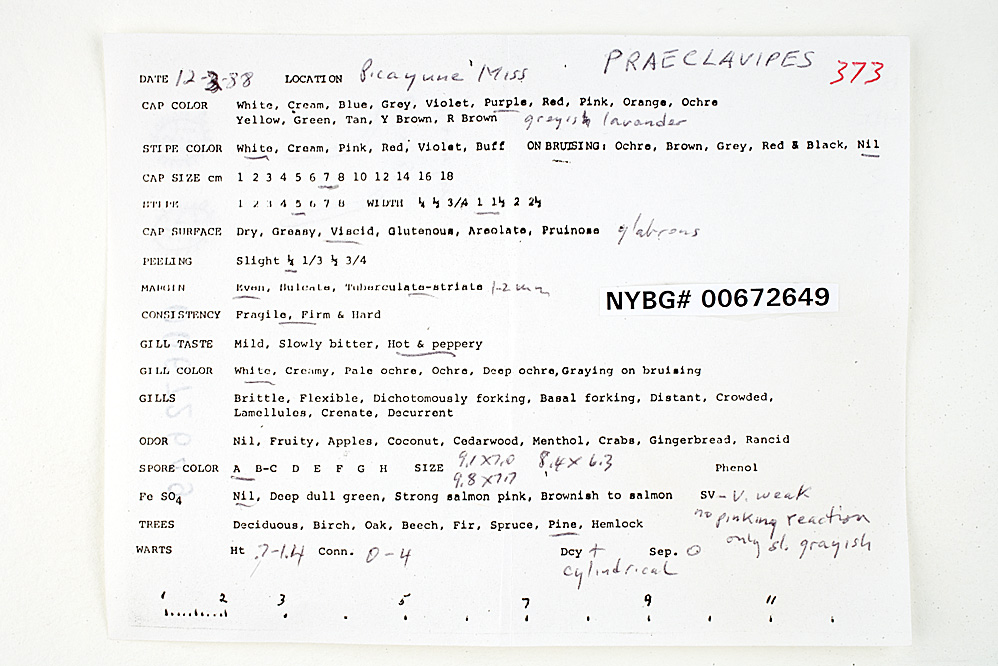 PRAECLAVIPES 373
DATE 12-3-88 LOCATION Picayune Miss
CAP COLOR White, Cream, Blue, Grey, Violet, Purple, Red, Pink, Orange, Ochre
Yellow, Green, Tan, Y Brown, R Brown greyish lavander
STIPE COLOR White, Cream, Pink, Red, Violet, Buff ON BRUISING: Ochre, Brown, Grey, Red & Black, Nil
CAP SIZE cm 1 2 3 4 5 6 7 8 10 12 14 16 18
STIPE 1 2 3 4 5 6 7 8 WIDTH ¼ ½ 3/4 1 1½ 2 2½
CAP SURFACE Dry, Greasy, Viscid, Glutenous, Areolate, Pruinose glabrous
PEELING Slight ¼ 1/3 ½ 3/4
MARGIN Even, Sulcate, Tuberculate-striate 1-2 mm
NYBG# 00672649
CONSISTENCY Fragile, Firm & Hard
GILL TASTE Mild, Slowly bitter, Hot & peppery
GILL COLOR White, Creamy, Pale ochre, Ochre, Deep ochre, Graying on bruising
GILLS Brittle, Flexible, Dichotomously forking, Basal forking, Distant, Crowded,
Lamellules, Crenate, Decurrent
ODOR Nil, Fruity, Apples, Coconut, Cedarwood, Menthol, Crabs, Gingerbread, Rancid
SPORE COLOR A B-C D E F G H SIZE 9.1 x 7.0 8.4 x 6.3 Phenol
9.8 x 7.7
Fe SO4 Nil, Deep dull green, Strong salmon pink, Brownish to salmon SV - V. weak
no pinking reaction
TREES Deciduous, Birch, Oak, Beech, Fir, Spruce, Pine, Hemlock
only sl. grayish
WARTS Ht .7-1.4 Conn. 0-4 Dcy + Sep. 0
cylindrical
1 2 3 5 7 9 11